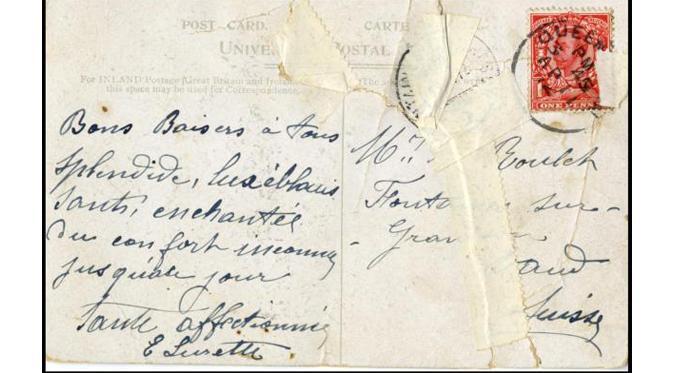 POST CARD.
CARTE
UNIVE POSTAL
For INLAND Postage (Great Britain and Irelan
this space may be used for Correspondence.
QUEEN
ONE PENNY
Bons Baisers à tous
splendide,
santé, enchantée
du confort inconnu
jusqu'à ce jour
Tante affectionnée
E Lurette
Roulet
sur-
Gran
Suisse